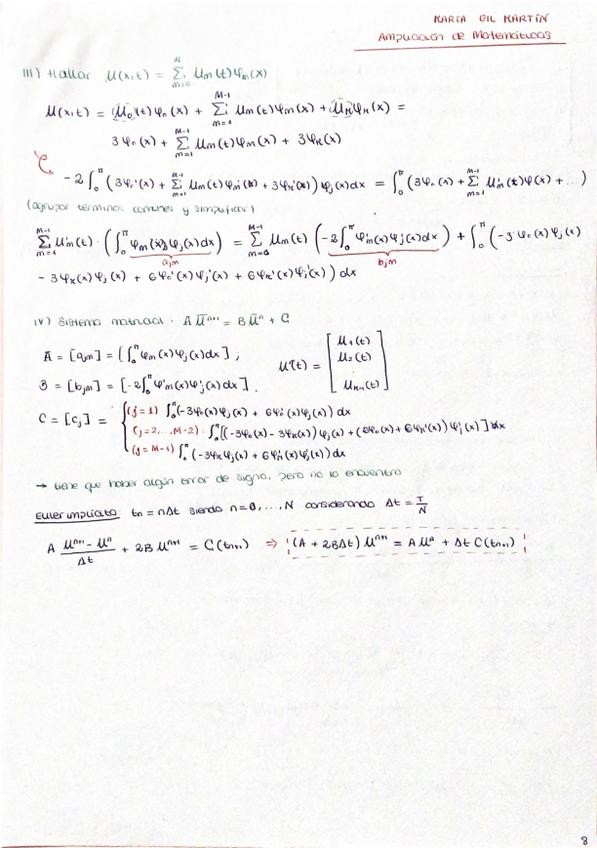 MARÍA GIL MARTÍN
Ampliación de Matemáticas
III) Hallar u(x,t) = Σ_{m=0}^{M} u_m(t)φ_m(x)
u(x,t) = u_0(t)φ_0(x) + Σ_{m=1}^{M-1} u_m(t)φ_m(x) + u_M φ_M(x) =
3φ_0(x) + Σ_{m=1}^{M-1} u_m(t)φ_m(x) + 3φ_M(x)
-2∫_0^π (3φ_0'(x) + Σ_{m=1}^{M-1} u_m(t)φ_m'(x) + 3φ_M'(x)) φ_j(x)dx = ∫_0^π (3φ_0(x) + Σ_{m=1}^{M-1} u_m'(t)φ(x) + ...)
(agrupar términos comunes y simplificar)
Σ_{m=1}^{M-1} u_m'(t) · (∫_0^π φ_m(x)φ_j(x)dx) = Σ_{m=0}^{M-1} u_m(t) (-2∫_0^π φ_m'(x)φ_j'(x)dx) + ∫_0^π (-3φ_0(x)φ_j(x)
a_jm b_jm
- 3φ_M(x)φ_j(x) + 6φ_0'(x)φ_j'(x) + 6φ_M'(x)φ_j'(x)) dx
IV) Sistema matricial: A ū^{n+1} = B ū^n + C
A = [a_jm] = [∫_0^π φ_m(x)φ_j(x)dx] ;
B = [b_jm] = [-2∫_0^π φ_m'(x)φ_j'(x)dx] .
u(t) = [u_1(t) u_2(t) ⋮ u_{M-1}(t)]
C = [c_j] = { (j=1) ∫_0^π (-3φ_0(x)φ_j(x) + 6φ_0'(x)φ_j'(x)) dx
(j=2,...,M-2) ∫_0^π [(-3φ_0(x) - 3φ_M(x)) φ_j(x) + (6φ_0'(x) + 6φ_M'(x)) φ_j'(x)] dx
(j=M-1) ∫_0^π (-3φ_M φ_j(x) + 6φ_M'(x)φ_j'(x)) dx
→ tiene que haber algún error de signo, pero no lo encuentro
Euler implícito: t_n = nΔt siendo n=0,...,N considerando Δt = T/N
A (u^{n+1} - u^n)/Δt + 2B u^{n+1} = C(t_{n+1}) ⇒ (A + 2BΔt) u^{n+1} = A u^n + Δt C(t_{n+1})
8